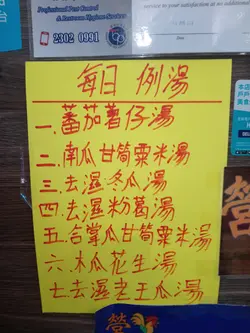 Professional Pest Control
& Washroom Hygiene Services
2302 0991
每日 例湯
一. 蕃茄薯仔湯
二. 南瓜甘筍粟米湯
三. 去濕冬瓜湯
四. 去濕粉葛湯
五. 合掌瓜甘筍粟米湯
六. 木瓜花生湯
七. 去濕老王瓜湯